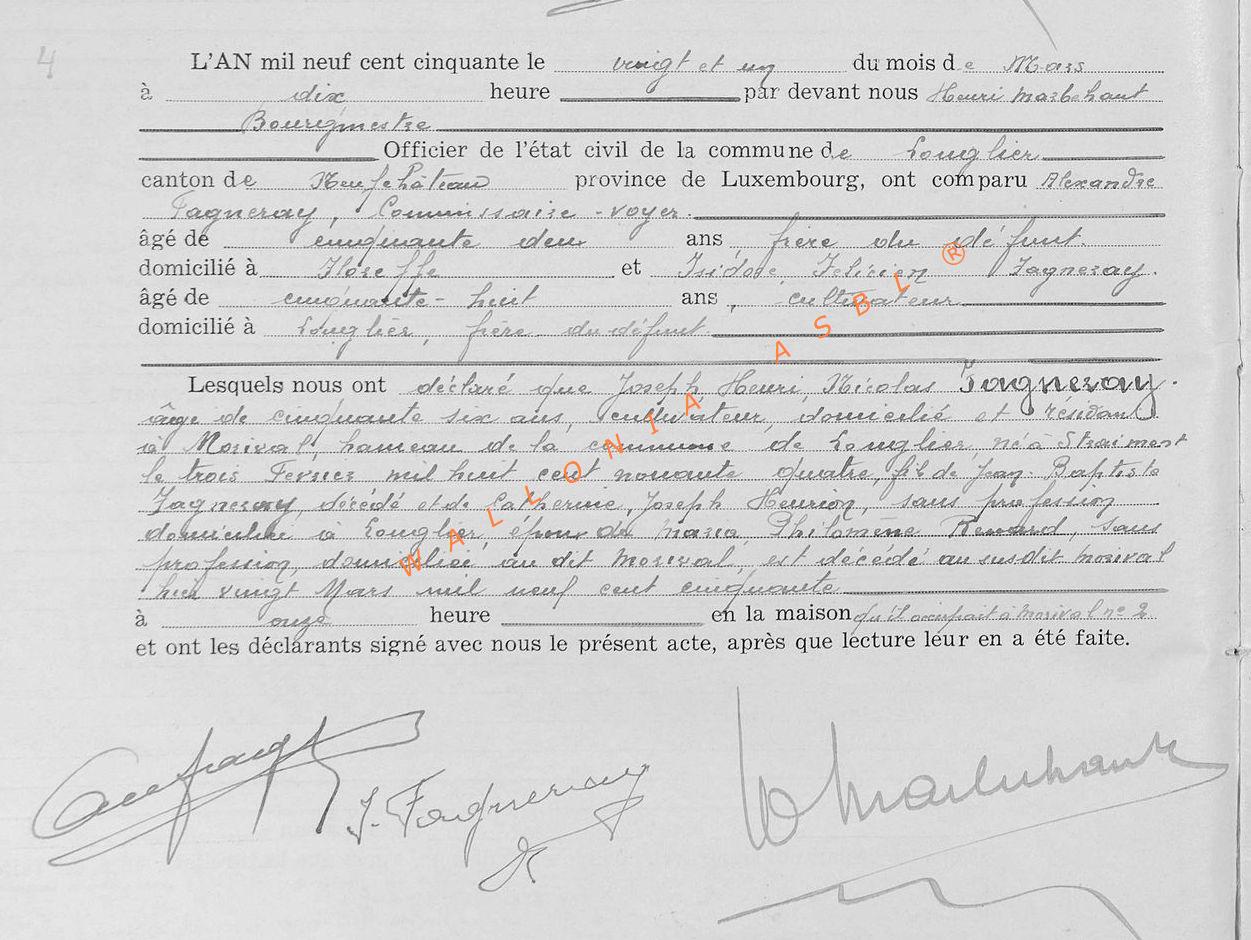 4
L'AN mil neuf cent cinquante le vingt et un du mois de Mars
à dix heure par devant nous Henri Marbehant
Bourgmestre
Officier de l'état civil de la commune de Longlier
canton de Neufchâteau province de Luxembourg, ont comparu Alexandre
Fagneray, Commissaire-voyer.
âgé de cinquante deux ans frère du défunt.
domicilié à Floreffe et Isidore Felicien Fagneray.
âgé de cinquante-huit ans, cultivateur
domicilié à Longlier, frère du défunt
Lesquels nous ont déclaré que Joseph, Henri, Nicolas Fagneray.
âge de cinquante six ans, cultivateur, domicilié et résidant
à Morival, hameau de la commune de Longlier, né à Straimont
le trois Fevrier mil huit cent nonante quatre, fils de Jean-Baptiste
Fagneray, décédé et de Catherine, Joseph Henrion, sans profession
domiciliée à Longlier, époux de Maria, Philomène Renard, sans
profession, domiciliée au dit Morival, est décédé au susdit Morival
hier vingt Mars mil neuf cent cinquante
à onze heure en la maison qu'il occupait à Morival n° 2
et ont les déclarants signé avec nous le présent acte, après que lecture leur en a été faite.
J. Fagneray
WALLONIA ASBL ®